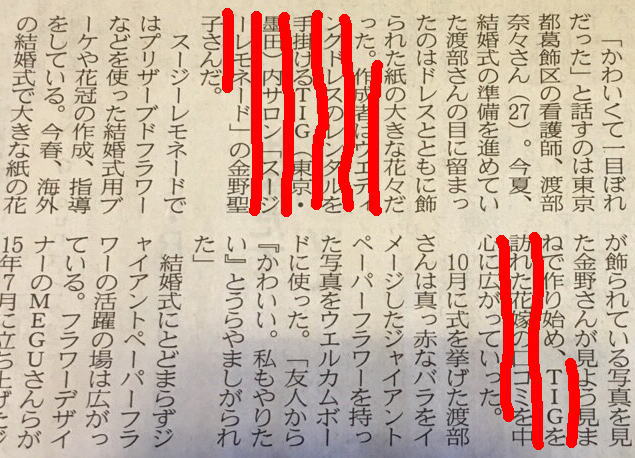 「かわいくて一目ぼれ
だった」と話すのは東京
都葛飾区の看護師、渡部
奈々さん（27）。今夏、
結婚式の準備を進めてい
た渡部さんの目に留まっ
たのはドレスとともに飾
られた紙の大きな花々だ
った。作成者はウエディ
ングドレスのレンタルを
手掛けるTIG（東京・
墨田）内サロン「スージ
ーレモネード」の金野聖
子さんだ。
スージーレモネードで
はプリザーブドフラワー
などを使った結婚式用ブ
ーケや花冠の作成、指導
をしている。今春、海外
の結婚式で大きな紙の花
が飾られている写真を見
た金野さんが見よう見ま
ねで作り始め、TIGを
訪れた花嫁の口コミを中
心に広がっていった。
10月に式を挙げた渡部
さんは真っ赤なバラをイ
メージしたジャイアント
ペーパーフラワーを持っ
た写真をウエルカムボー
ドに使った。「友人から
『かわいい。私もやりた
い』とうらやましがられ
た」
結婚式にとどまらずジ
ャイアントペーパーフラ
ワーの活躍の場は広がっ
ている。フラワーデザイ
ナーのMEGUさんらが
15年7月に立ち上げたジ